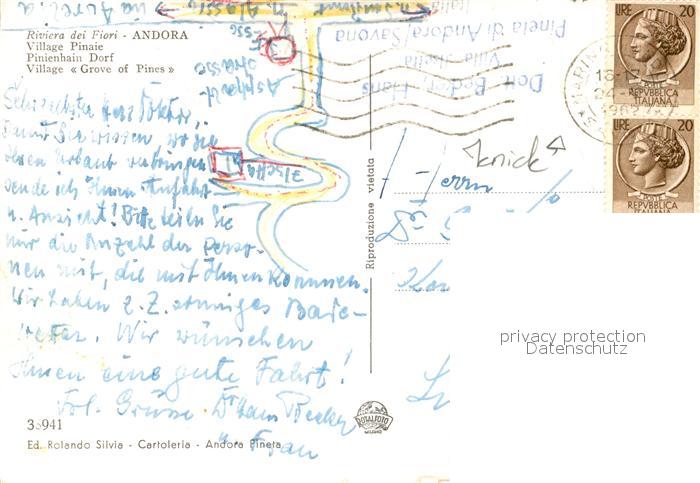 Riviera dei Fiori - ANDORA
Village Pinaie
Pinienhain Dorf
Village « Grove of Pines »
Via Aurelia
n. Alassio
Italia
Pineta di Andora/Savona
Villa Isetta
Dott. Becker, Hans
Asphalt-
strasse
ESSO
Isetta
Sehr geehrter Herr Doktor!
Damit Sie wissen wo Sie
Ihren Urlaub verbringen
sende ich Ihnen Anfahrt-
u. Ansicht! Bitte teilen Sie
mir die Anzahl der Perso-
nen mit, die mit Ihnen kommen.
Wir haben z. Z. sonniges Bade-
wetter. Wir wünschen
Ihnen eine gute Fahrt!
Grüsse Dr Hans Becker
u. Frau
36941
Ed. Rolando Silvia - Cartoleria - Andora Pineta
Riproduzione vietata
ROTALFOTO
MILANO
knick
Herrn
LIRE 20
POSTE
REPVBBLICA
ITALIANA
LIRE 20
POSTE
REPVBBLICA
ITALIANA
MARINA
1962
privacy protection
Datenschutz